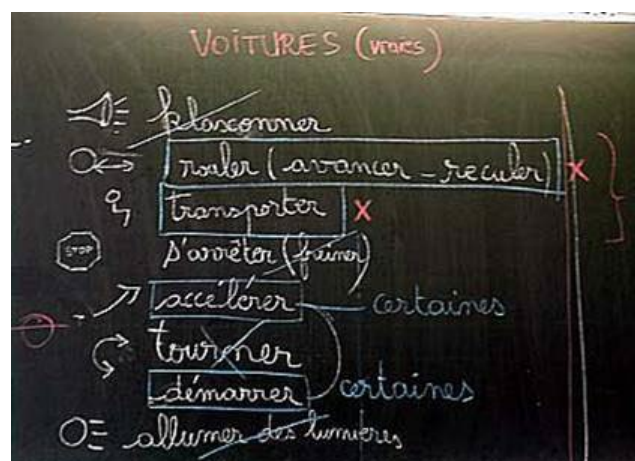 VOITURES (vraies)
klaxonner
rouler (avancer - reculer) X
transporter X
STOP s'arrêter (freiner)
accélérer certaines
tourner
démarrer certaines
allumer des lumières